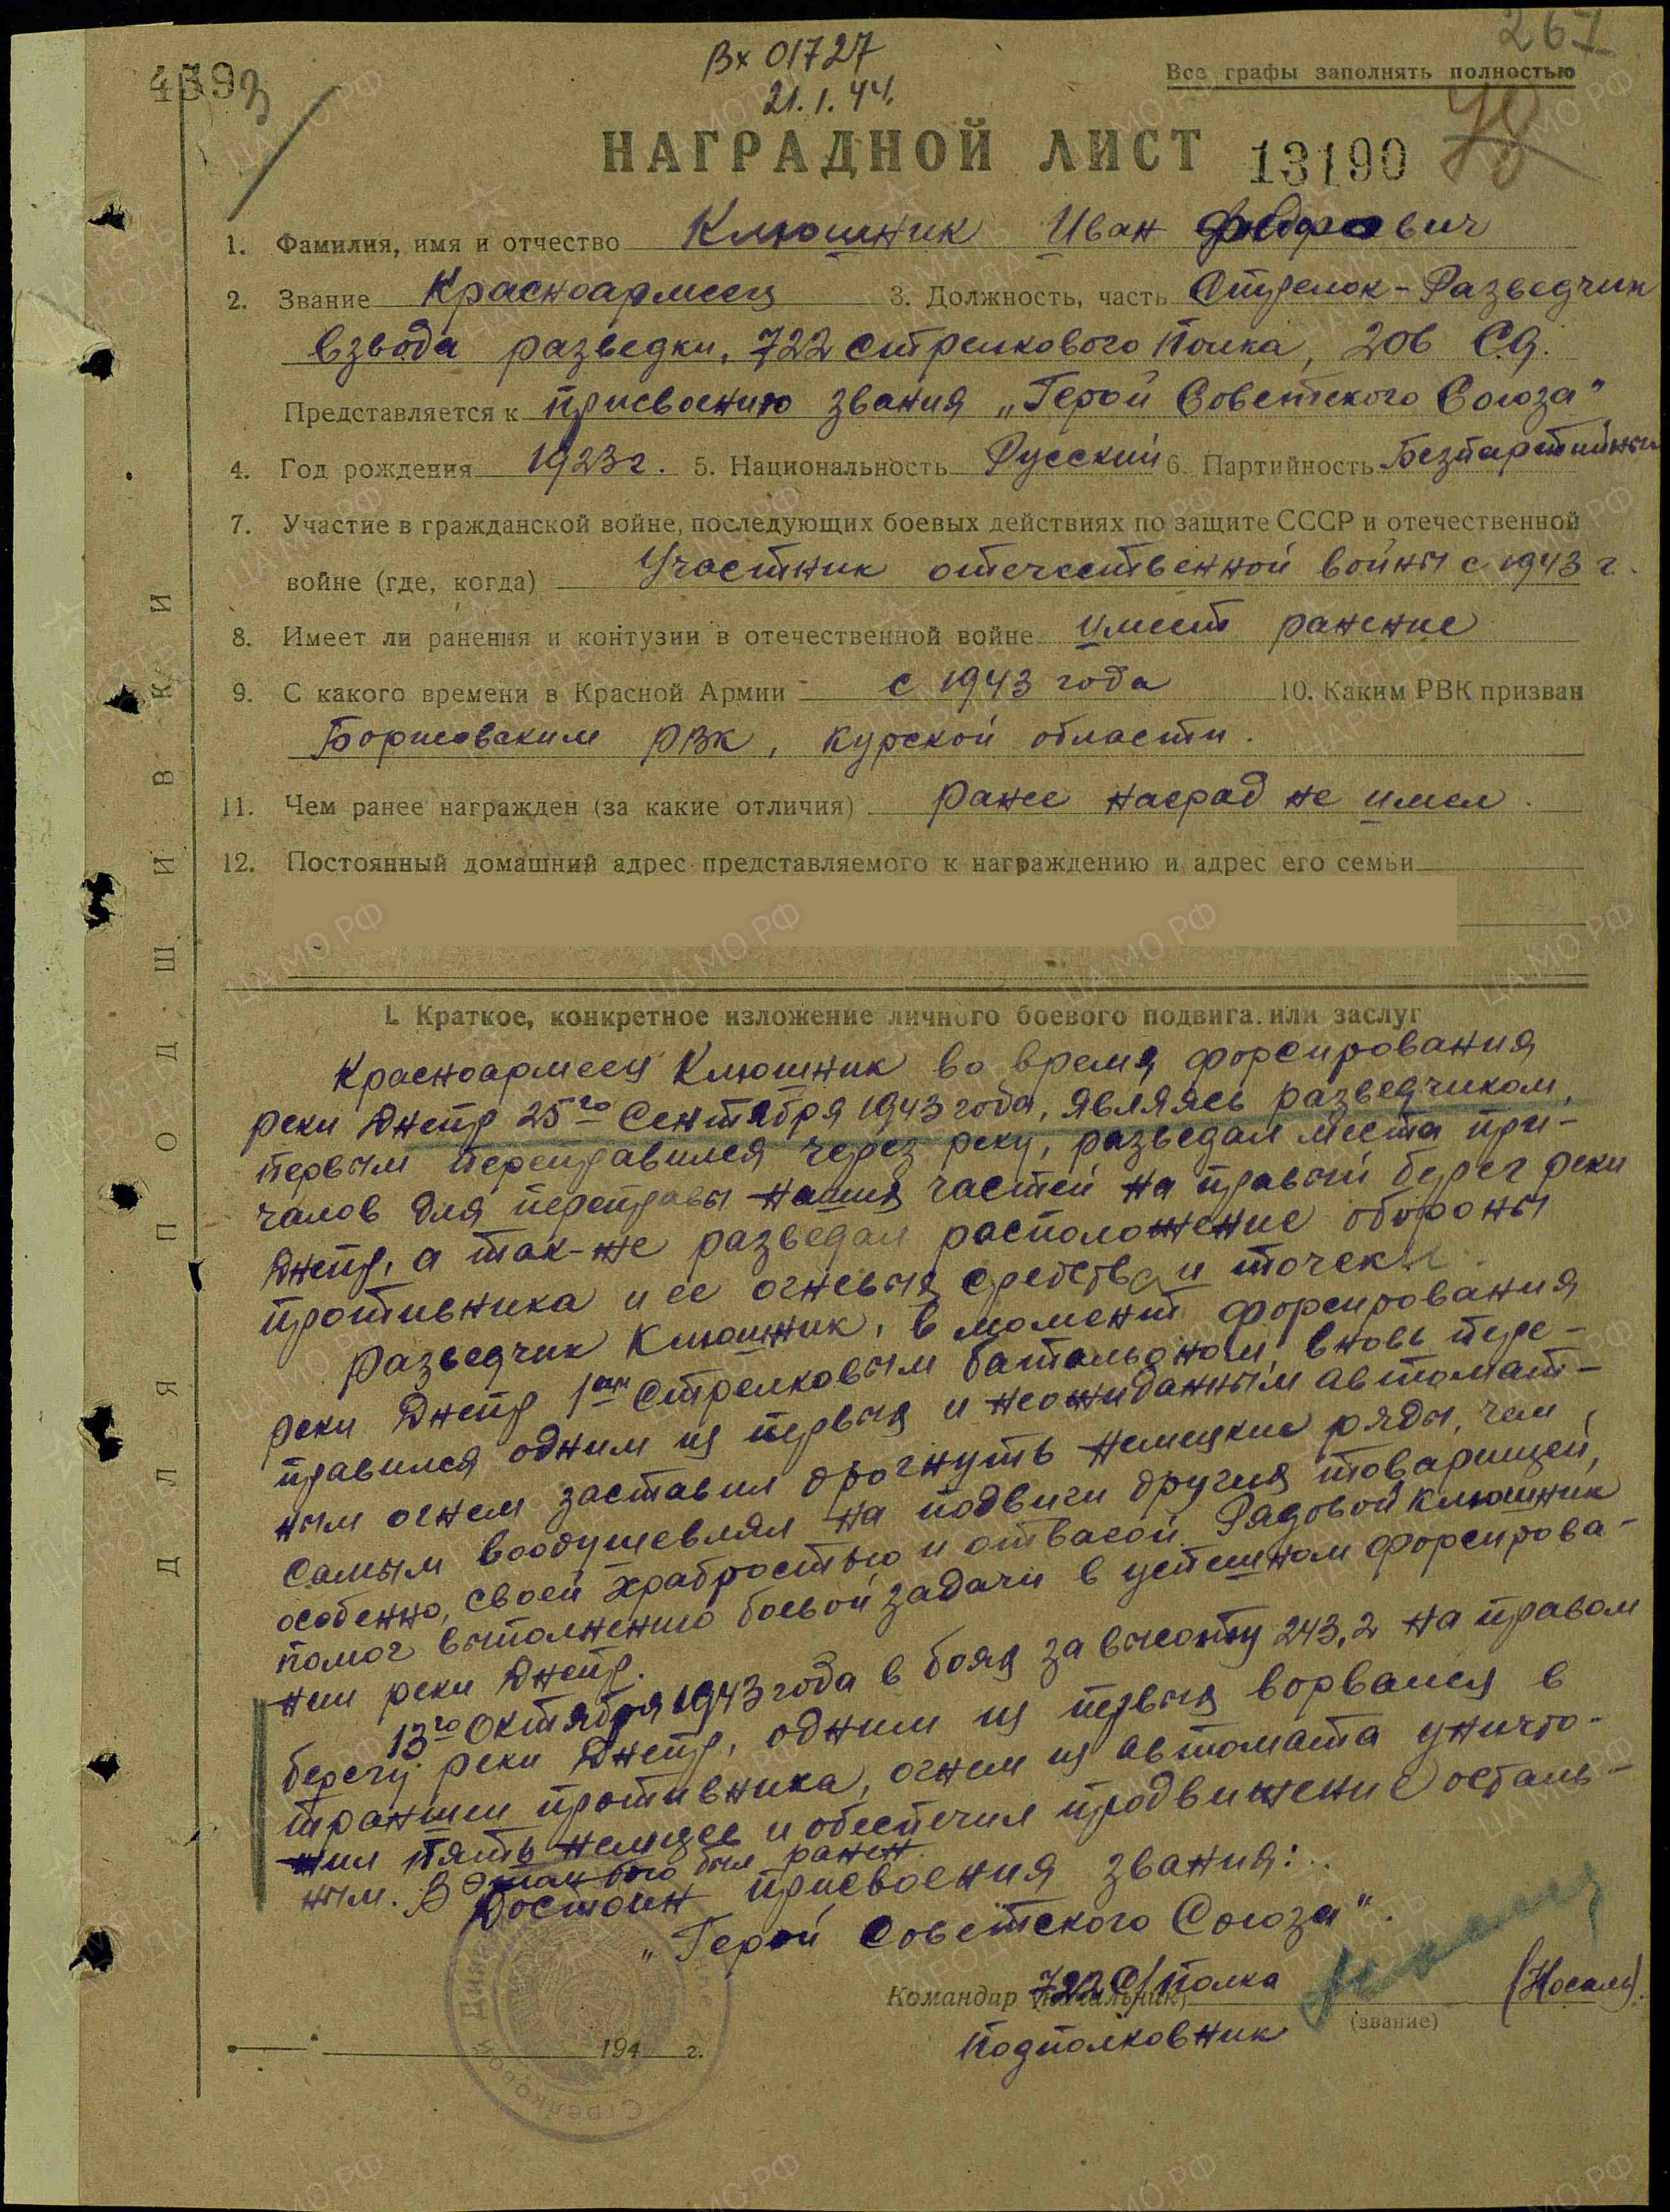 267
Вх 01727
21.1.44.
4393
Все графы заполнять полностью
НАГРАДНОЙ ЛИСТ 13190
1. Фамилия, имя и отчество Клюшник Иван Федорович
2. Звание Красноармеец 3. Должность, часть Стрелок-Разведчик
взвода разведки, 722 стрелкового полка, 206 С.Д.
Представляется к присвоению звания „Герой Советского Союза"
4. Год рождения 1923г. 5. Национальность Русский 6. Партийность Безпартийный
7. Участие в гражданской войне, последующих боевых действиях по защите СССР и отечественной
войне (где, когда) Участник отечественной войны с 1943 г.
8. Имеет ли ранения и контузии в отечественной войне имеет ранение
9. С какого времени в Красной Армии с 1943 года 10. Каким РВК призван
Борисовским РВК, Курской области.
11. Чем ранее награжден (за какие отличия) Ранее наград не имел.
12. Постоянный домашний адрес представляемого к награждению и адрес его семьи
I. Краткое, конкретное изложение личного боевого подвига или заслуг
Красноармеец Клюшник во время форсирования
реки Днепр 25го Сентября 1943 года, являясь разведчиком,
первым переправился через реку, разведал места при-
чалов для переправы наших частей на правый берег реки
Днепр, а так-же разведал расположение обороны
противника и ее огневых средств и точек.
Разведчик Клюшник, в момент форсирования
реки Днепр 1ым Стрелковым батальоном, вновь пере-
правился одним из первых и неожиданным автомат-
ным огнем заставил дрогнуть немецкие ряды, чем
самым воодушевлял на подвиги других товарищей,
особенно, своей храбростью и отвагой. Рядовой Клюшник
помог выполнению боевой задачи в успешном форсирова-
нии реки Днепр.
13го Октября 1943 года в боях за высоту 243,2 на правом
берегу реки Днепр, одним из первых ворвался в
траншеи противника, огнем из автомата уничто-
жил пять немцев и обеспечил продвижение осталь-
ным. В этом бою был ранен.
Достоин присвоения звания:
„Герой Советского Союза".
Командир (начальник) 722 С/Полка
Подполковник
(звание)
194 г.
ДЛЯ ПОДШИВКИ
ЦА МО РФ
ПАМЯТЬ НАРОДА